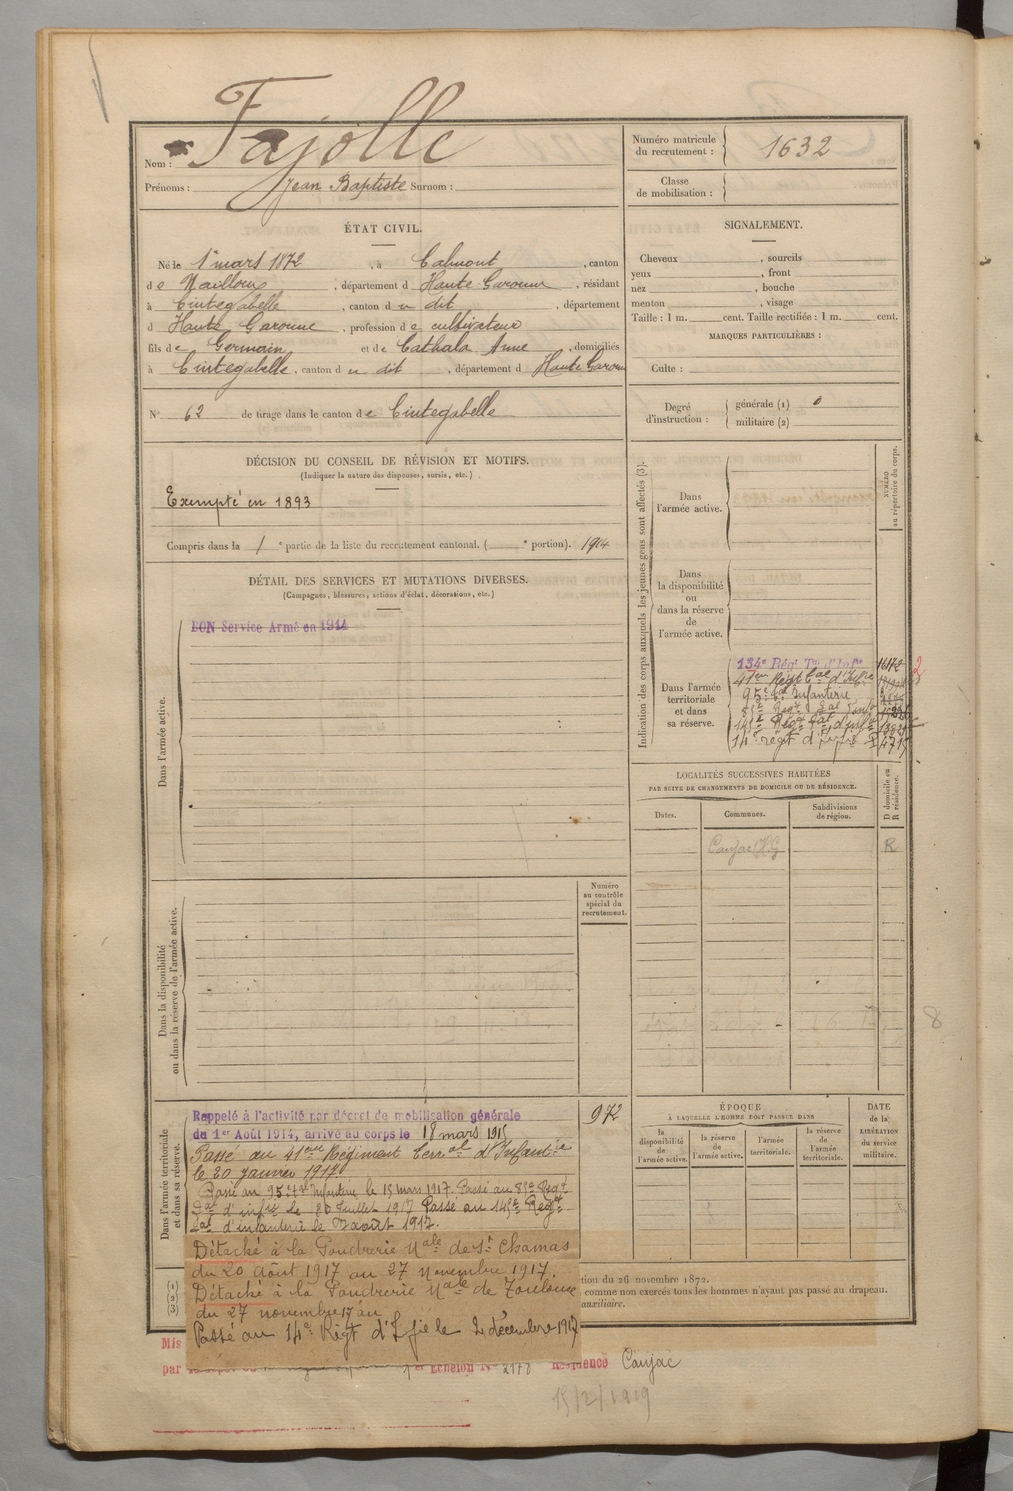 Fajolle
Nom :
Prénoms : Jean Baptiste Surnom :
Numéro matricule du recrutement : 1632
Classe de mobilisation :
ÉTAT CIVIL.
Né le 1er mars 1872, à Calmont, canton
de Nailloux, département d Haute Garonne, résidant
à Cintegabelle, canton d u dit, département
d Haute Garonne, profession de cultivateur
fils de Germain et de Cathala Anne, domiciliés
à Cintegabelle, canton d u dit, département d Haute Garonne
N° 62 de tirage dans le canton de Cintegabelle
SIGNALEMENT.
Cheveux, sourcils
yeux, front
nez, bouche
menton, visage
Taille : 1 m. cent. Taille rectifiée : 1 m. cent.
MARQUES PARTICULIÈRES :
Culte :
Degré d'instruction : générale (1) 0
militaire (2)
DÉCISION DU CONSEIL DE RÉVISION ET MOTIFS.
(Indiquer la nature des dispenses, sursis, etc.)
Exempté en 1893
Compris dans la 1e partie de la liste du recrutement cantonal. ( e portion). 1914
DÉTAIL DES SERVICES ET MUTATIONS DIVERSES.
(Campagnes, blessures, actions d'éclat, décorations, etc.)
Dans l'armée active.
BON Service Armé en 1914
Indication des corps auxquels les jeunes gens sont affectés (3).
NUMÉRO au répertoire du corps.
Dans l'armée active.
Dans la disponibilité ou dans la réserve de l'armée active.
Dans l'armée territoriale et dans sa réserve.
134e Régt Tal d'Infie 16172
41em Régt Eal d'Infrie
95e Eal Infanterie
145e Régt Eal d'Infie
14e régt d'Infie
LOCALITÉS SUCCESSIVES HABITÉES
PAR SUITE DE CHANGEMENTS DE DOMICILE OU DE RÉSIDENCE.
Dates. Communes. Subdivisions de région. D domicile ou R résidence.
Caujac (H.G R
Dans la disponibilité ou dans la réserve de l'armée active.
Numéro au contrôle spécial du recrutement.
972
Dans l'armée territoriale et dans sa réserve.
Rappelé à l'activité par décret de mobilisation générale
du 1er Août 1914, arrivé au corps le 18 mars 1915
Passé au 41eme Régiment Terral d'Infantie
le 30 janvier 1917
Passé au 95e tal Infanterie le 15 mars 1917. Passé au 85e Régt
Eal d'infie le 30 Juillet 1917 Passé au 145e Régt
Eal d'infanterie le 7 août 1917.
Détaché à la Poudrerie Nale de St Chamas
du 20 août 1917 au 27 Novembre 1917.
Détaché à la Poudrerie Nale de Toulouse
du 27 novembre 17 au
Passé au 14e Régt d'Ifie le 2 décembre 1917
ÉPOQUE
À LAQUELLE L'HOMME DOIT PASSER DANS
la disponibilité de l'armée active. la réserve de l'armée active. l'armée territoriale. la réserve de l'armée territoriale.
DATE de la LIBÉRATION du service militaire.
(1)
(2)
(3)
tion du 26 novembre 1872.
comme non exercés tous les hommes n'ayant pas passé au drapeau.
auxiliaire.
Mis
par
Échelon No 2178 Résidence Caujac
15/2/1919
8